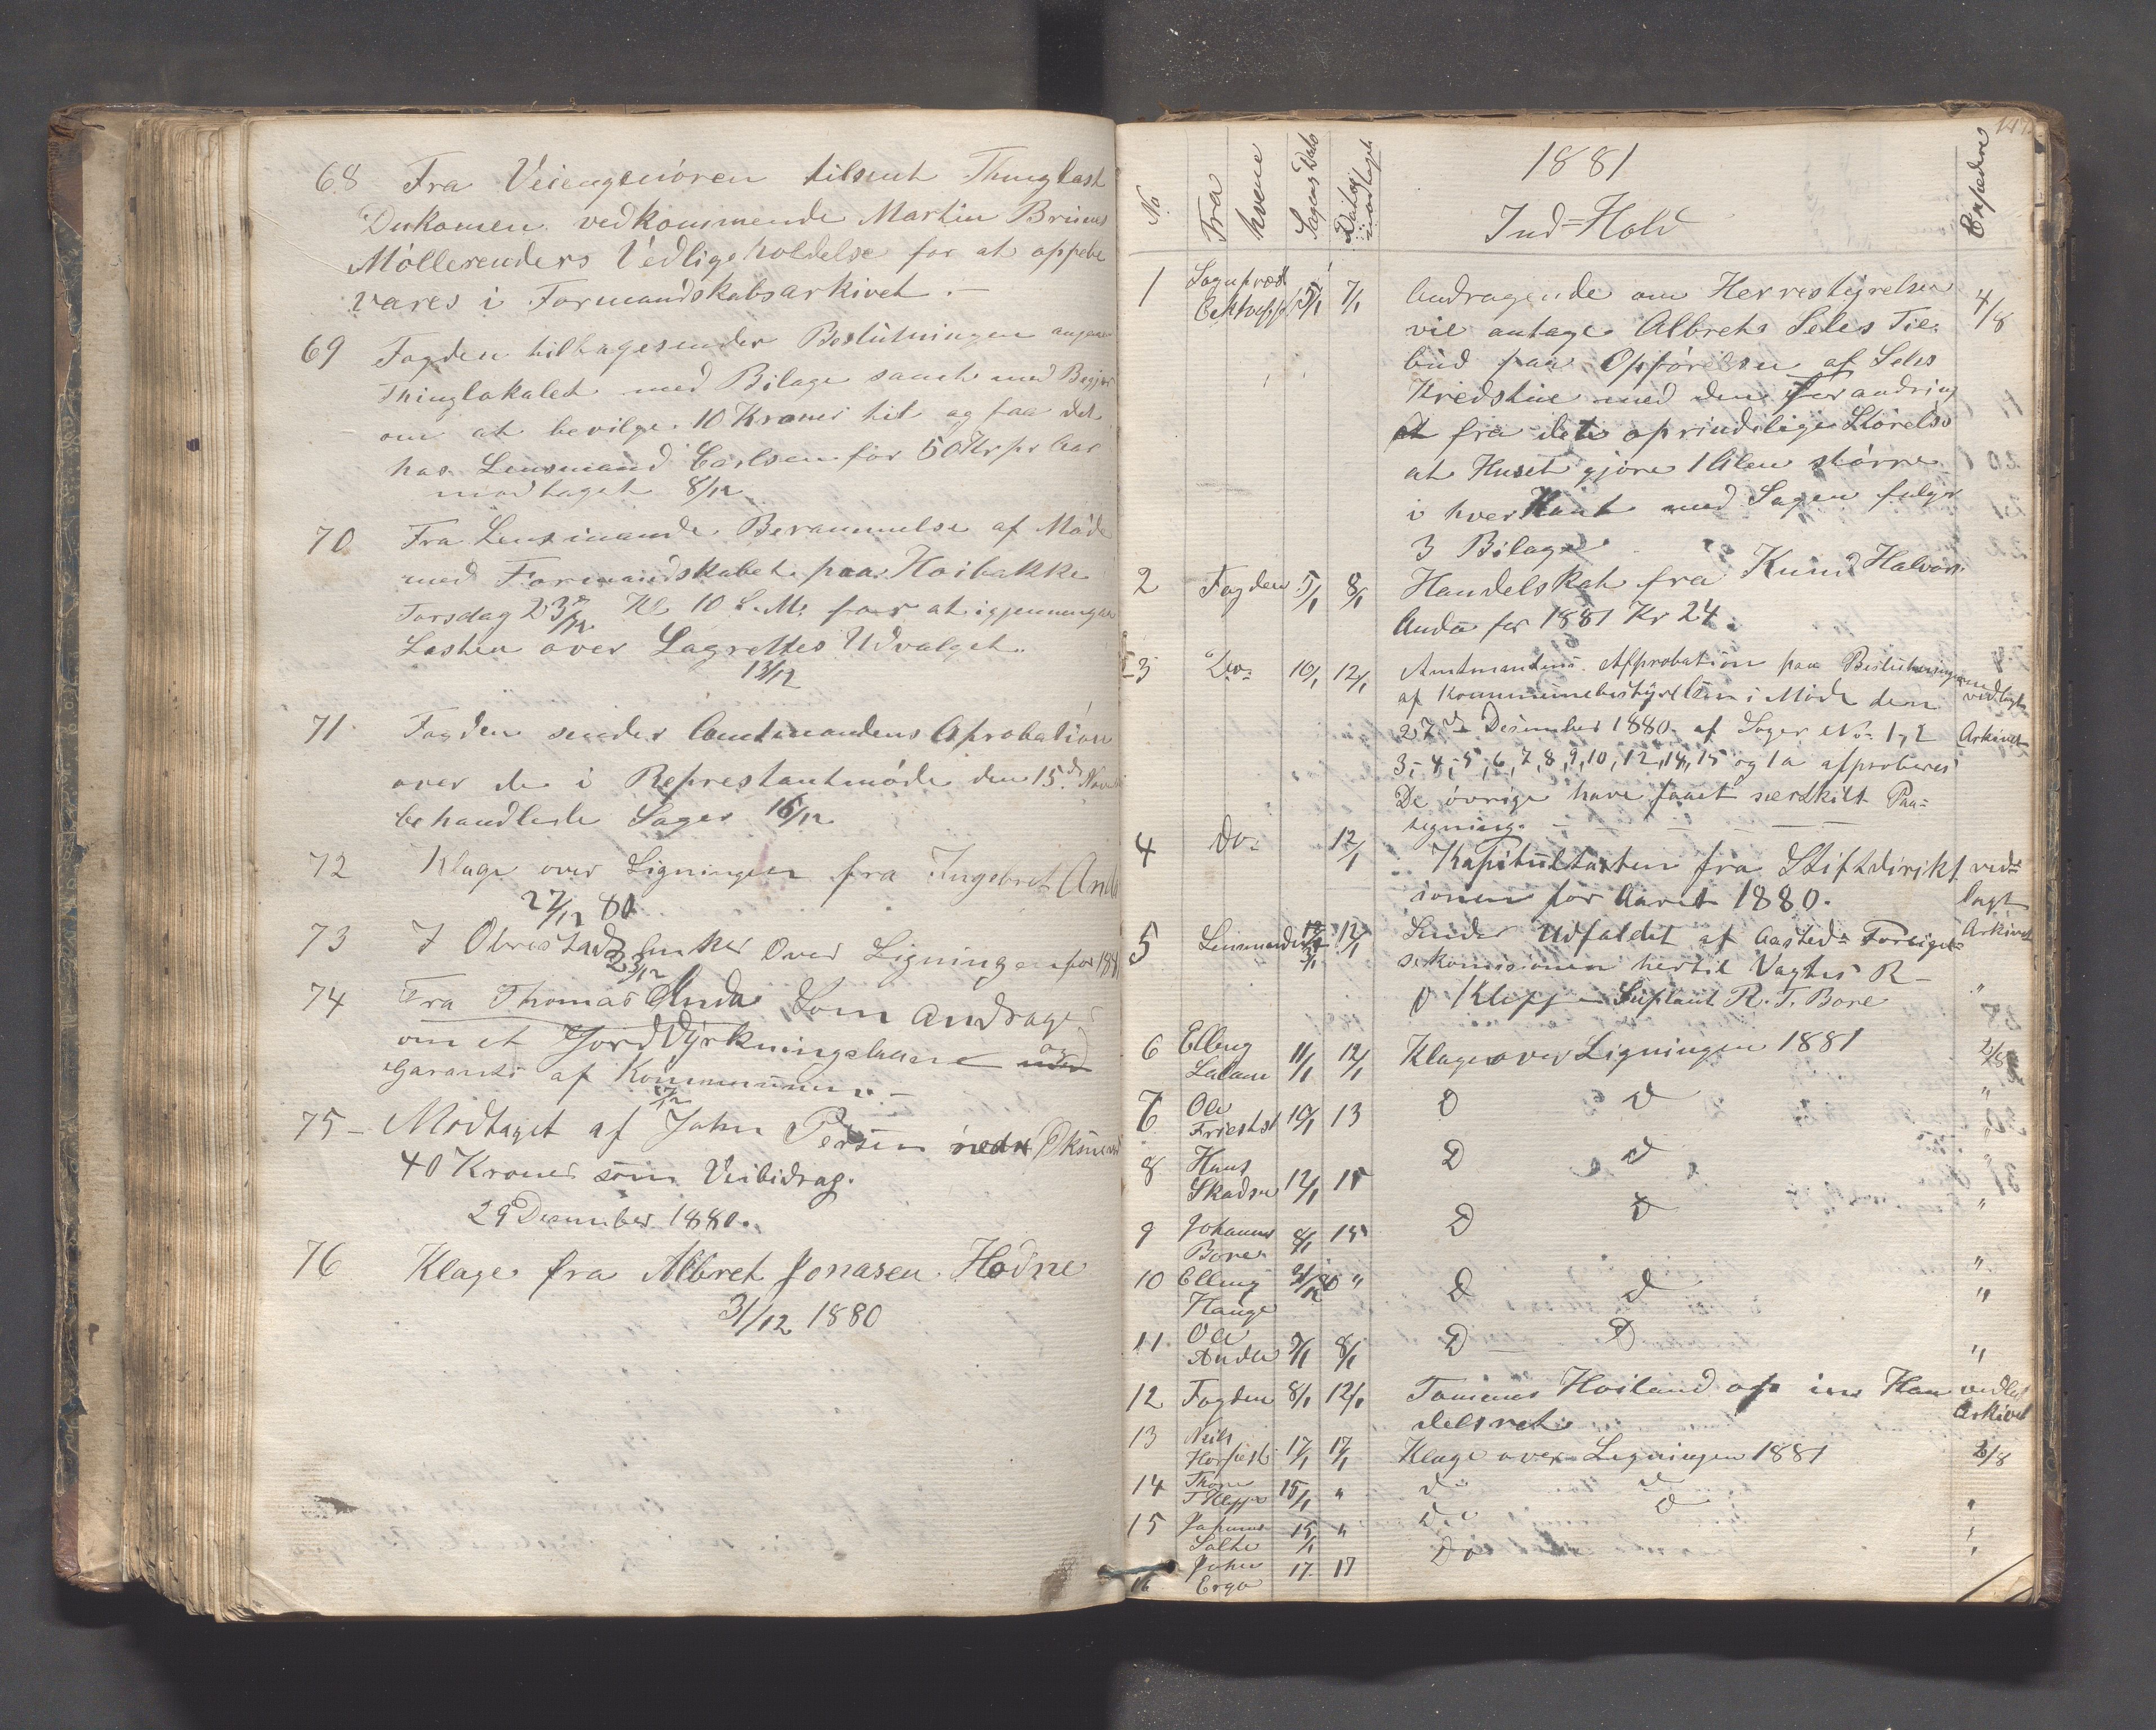 68 Fra Veiengeniøren tilsent Thinglæst
Dukomen vedkommende Martin Brunes
Møllerenders Vedligeholdelse for at oppebe
vares i Formandskabsarkivet. —
69 Fogden tilbagesender Beslutningen angaae
Thinglokalet med Bilage samt med Begjær
om at bevilge 10 Kroner til og faa det
hos Lensmand Carlsen for 50 Kr pr Aar
modtaget 8/12
70 Fra Lensmande Berammelse af Møde
med Formandskabet paa Hoibakke
Torsdag 23de/12 Kl 10 F.M. for at igjennemgaa
Listen over Lagrettes Udvalget.
13/12
71 Fogden sender Amtmandens Aprobation
over de i Represtantmøde den 15de Novem
behandlede Sager 16/12
72 Klage over Ligningen fra Ingebret Anda
27/12 80
73 J Obrestad Enker Over Ligningen for 1881
23/12
74 Fra Thomas Anda Som andrager
om et Jord Dyrkningslaan og
Garanti af Kommunen. —
75 — Modtaget af John Persen nedre Øksnevad
40 Kroner som Veibidrag.
29 Desember 1880.
76 Klage fra Albret Jonasen Hodne
31/12 1880
147
No. Fra hvem Sagens Dato Datos modtaget 1881 Ind=Hold Expedere
1 Sogneprest 5/1 7/1 Andragende om Herrestyrelsen 4/8
vil antage Albrets Seles Til
bud paa Opførelsen af Seles
Kredshue med den forandring
at fra det oprindelige Størelse
at Huset gjøre 1 Alen større
i hver Kant med Sagen følger
3 Bilage
2 Fogden 5/1 8/1 Handelskat fra Knud Halvors.
Anda for 1881 Kr 24.
3 Do. 10/1 12/1 Amtmandens Approbation paa Beslutninger vedlagt
af Kommunebestyrelsen i Møde den
27de Desember 1880 af Sager No. 1, 2 Arkivet
3, 4, 5, 6, 7, 8, 9, 10, 12, 14, 15 og 1a approberes
De øvrige have faaet serskilt Paa=
tegning.
4 Do. 12/1 Kapitultaxten fra Stiftdirikt ved=
sionen for Aaret 1880. lagt
5 Lensmanden 12/1 Sender Udfaldet af Aasteds Forligel= Arkivet
seskomisionen hertil Vagtes R—
O Klepp — Suplant R. T. Bore "
6 Elling Lalane 11/1 12/1 Klage over Ligningen 1881 2/8
7 Ole Friestad 10/1 13 D D "
8 Hans Skadsem 12/1 15 D D "
9 Johannes Bore 8/1 15 D D "
10 Elling Hauge 31/12 80 " D D "
11 Ole Anda 7/1 8/1 D D "
12 Fogden 8/1 12/1 Tommes Hoiland op sin Han vedlagt
delsret Arkivet
13 Niels Horpestad 17/1 17/1 Klage over Ligningen 1881 2/8
14 Thore T Klepp 15/1 " Do D "
15 Johannes Salte 15/1 " Do D "
16 John Erga 17 17 Do "